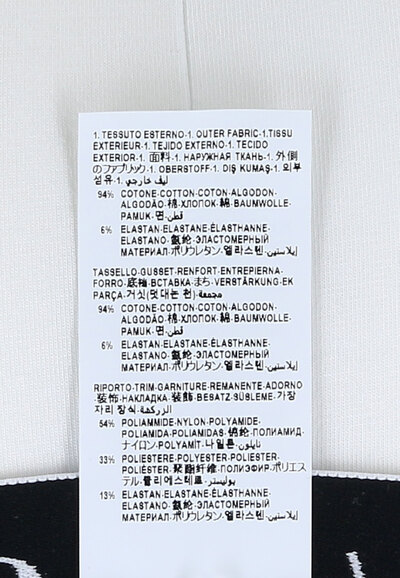 1. TESSUTO ESTERNO·1. OUTER FABRIC·1.TISSU
EXTERIEUR·1. TEJIDO EXTERNO·1. TECIDO
EXTERIOR·1. 面料·1. НАРУЖНАЯ ТКАНЬ·1. 外側
のファブリック·1. OBERSTOFF·1. DIŞ KUMAŞ·1. 외부
섬유·1. ليف خارجي
94% COTONE·COTTON·COTON·ALGODON·
ALGODÃO·棉·ХЛОПОК·綿·BAUMWOLLE·
PAMUK·면·قطن
6% ELASTAN·ELASTANE·ÉLASTHANNE·
ELASTANO·氨纶·ЭЛАСТОМЕРНЫЙ
МАТЕРИАЛ·ポリウレタン·엘라스텐·إيلاستين
TASSELLO·GUSSET·RENFORT·ENTREPIERNA·
FORRO·底裆·ВСТАВКА·まち·VERSTÄRKUNG·EK
PARÇA·거싯(덧대는 천)·مجمعة
94% COTONE·COTTON·COTON·ALGODON·
ALGODÃO·棉·ХЛОПОК·綿·BAUMWOLLE·
PAMUK·면·قطن
6% ELASTAN·ELASTANE·ÉLASTHANNE·
ELASTANO·氨纶·ЭЛАСТОМЕРНЫЙ
МАТЕРИАЛ·ポリウレタン·엘라스텐·إيلاستين
RIPORTO·TRIM·GARNITURE·REMANENTE·ADORNO
·装饰·НАКЛАДКА·装飾·BESATZ·SÜSLEME·가장
자리 장식·الزركشة
54% POLIAMMIDE·NYLON·POLYAMIDE·
POLIAMIDA·POLIAMIDAS·锦纶·ПОЛИАМИД·
ナイロン·POLYAMİT·나일론·نايلون
33% POLIESTERE·POLYESTER·POLIESTER·
POLIÉSTER·聚酯纤维·ПОЛИЭФИР·ポリエス
テル·폴리에스테르·بوليستر
13% ELASTAN·ELASTANE·ÉLASTHANNE·
ELASTANO·氨纶·ЭЛАСТОМЕРНЫЙ
МАТЕРИАЛ·ポリウレタン·엘라스텐·إيلاستين